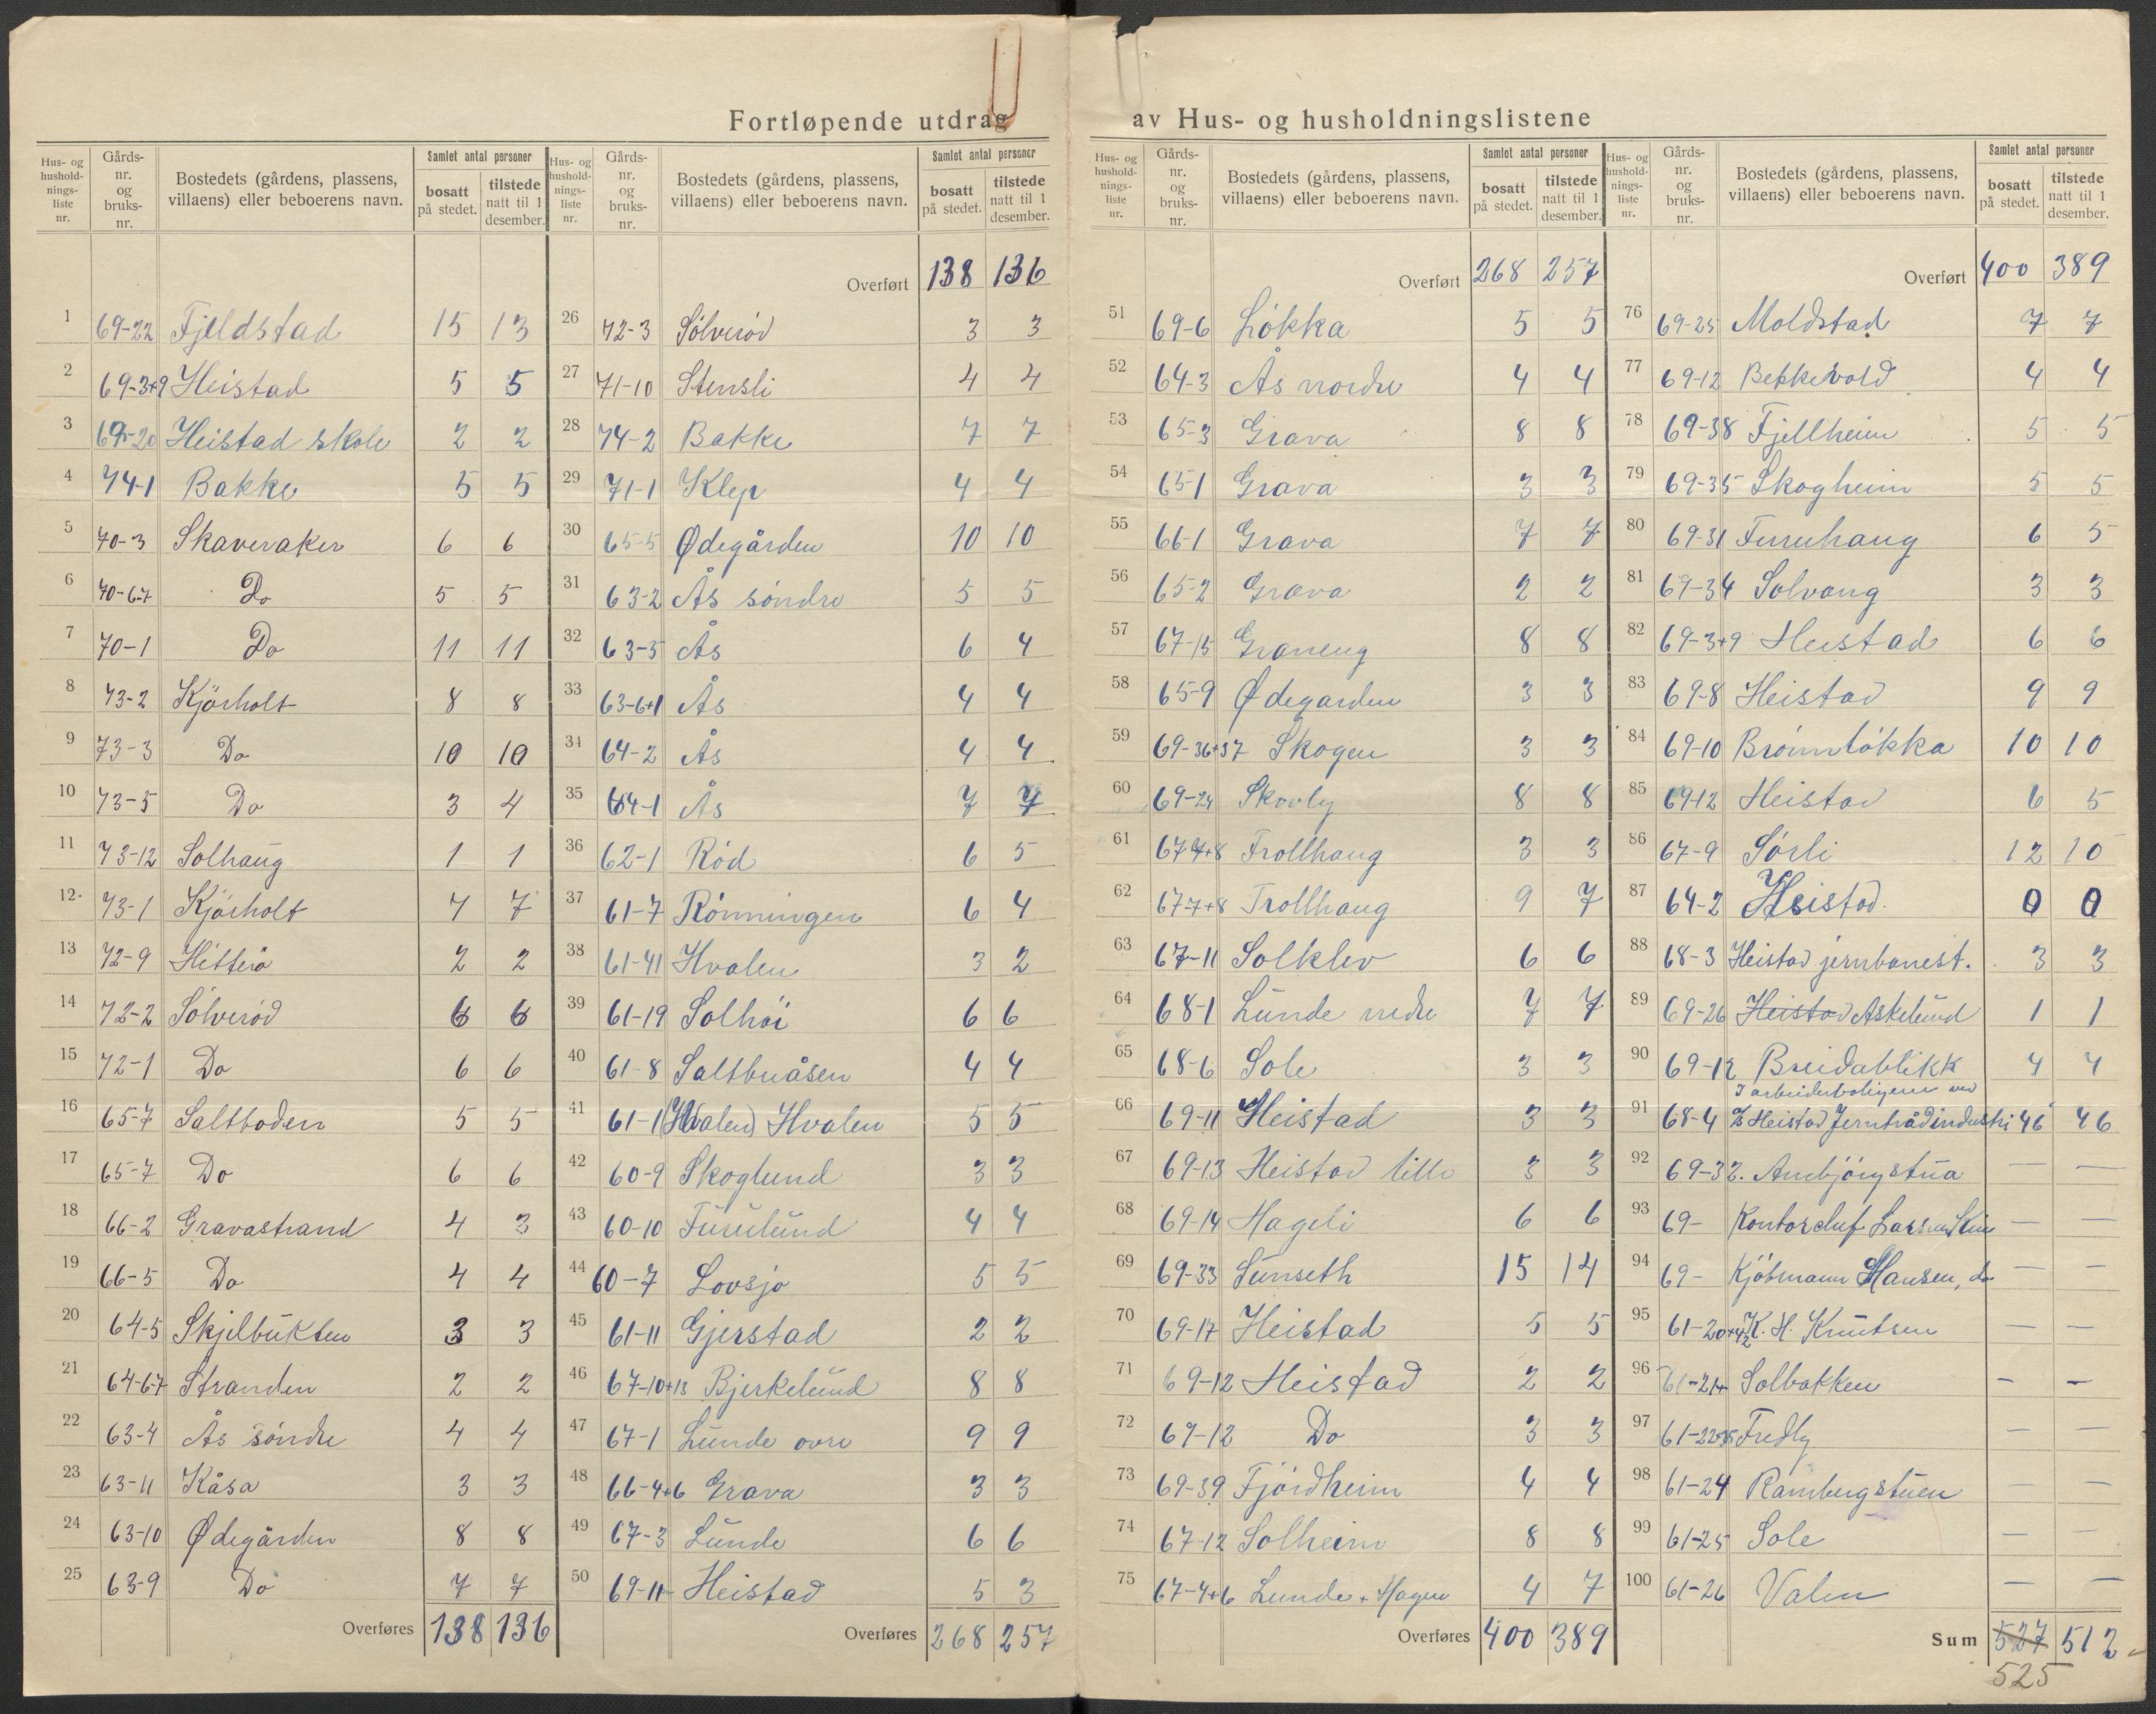 Fortløpende utdrag av Hus- og husholdningslistene
Hus- og husholdnings-liste nr. Gårds-nr. og bruks-nr. Bostedets (gårdens, plassens, villaens) eller beboerens navn. Samlet antal personer bosatt på stedet. tilstede natt til 1 desember.
1 69-22 Fjeldstad 15 13
2 69-3+9 Heistad 5 5
3 69-20 Heistad skole 2 2
4 74-1 Bakke 5 5
5 70-3 Skaveraker 6 6
6 70-6-7 Do 5 5
7 70-1 Do 11 11
8 73-2 Kjörholt 8 8
9 73-3 Do 10 10
10 73-5 Do 3 4
11 73-12 Solhaug 1 1
12 73-1 Kjörholt 7 7
13 72-9 Hitterö 2 2
14 72-2 Sölveröd 6 6
15 72-1 Do 6 6
16 65-7 Saltboden 5 5
17 65-7 Do 6 6
18 66-2 Gravastrand 4 3
19 66-5 Do 4 4
20 64-5 Skjelbukten 3 3
21 64-6-7 Stranden 2 2
22 63-4 Ås söndre 4 4
23 63-11 Kåsa 3 3
24 63-10 Ødegården 8 8
25 63-9 Do 7 7
Overføres 138 136
Hus- og husholdnings-liste nr. Gårds-nr. og bruks-nr. Bostedets (gårdens, plassens, villaens) eller beboerens navn. Samlet antal personer bosatt på stedet. tilstede natt til 1 desember.
Overført 138 136
26 72-3 Sölveröd 3 3
27 71-10 Stensli 4 4
28 74-2 Bakke 7 7
29 71-1 Klep 4 4
30 65-5 Ødegården 10 10
31 63-2 Ås söndre 5 5
32 63-5 Ås 6 4
33 63-6+1 Ås 4 4
34 64-2 Ås 4 4
35 64-1 Ås 7 7
36 62-1 Röd 6 5
37 61-7 Rönningen 6 4
38 61-41 Hvalen 3 2
39 61-19 Solhöi 6 6
40 61-8 Saltbuåsen 4 4
41 61-1 (Hvalen) Hvalen 5 5
42 60-9 Skoglund 3 3
43 60-10 Furulund 4 4
44 60-7 Lovsjo 5 5
45 61-11 Gjerstad 2 2
46 67-10+13 Bjerkelund 8 8
47 67-1 Lunde övre 9 9
48 66-4+6 Grava 3 3
49 67-3 Lunde 6 6
50 69-11 Heistad 5 3
Overføres 268 257
Hus- og husholdnings-liste nr. Gårds-nr. og bruks-nr. Bostedets (gårdens, plassens, villaens) eller beboerens navn. Samlet antal personer bosatt på stedet. tilstede natt til 1 desember.
Overført 268 257
51 69-6 Lökka 5 5
52 64-3 Ås nordre 4 4
53 65-3 Grava 8 8
54 65-1 Grava 3 3
55 66-1 Grava 7 7
56 65-2 Grava 2 2
57 67-15 Graneng 8 8
58 65-9 Ødegarden 3 3
59 69-36+37 Skogen 3 3
60 69-24 Skovly 8 8
61 67-7+8 Trollhaug 3 3
62 67-7+8 Trollhaug 9 7
63 67-11 Solklev 6 6
64 68-1 Lunde nedre 7 7
65 68-6 Sole 3 3
66 69-11 Heistad 3 3
67 69-13 Heistad lille 3 3
68 69-14 Hageli 6 6
69 69-33 Sunseth 15 14
70 69-17 Heistad 5 5
71 69-12 Heistad 2 2
72 69-12 Do 3 3
73 69-39 Fjördheim 4 4
74 67-12 Solheim 8 8
75 67-4+6 Lunde + Hagen 4 7
Overføres 400 389
Hus- og husholdnings-liste nr. Gårds-nr. og bruks-nr. Bostedets (gårdens, plassens, villaens) eller beboerens navn. Samlet antal personer bosatt på stedet. tilstede natt til 1 desember.
Overført 400 389
76 69-25 Moldstad 7 7
77 69-12 Bekkevold 4 4
78 69-38 Fjellheim 5 5
79 69-35 Skogheim 5 5
80 69-31 Furuhaug 6 5
81 69-34 Solvang 3 3
82 69-3+9 Heistad 6 6
83 69-8 Heistad 9 9
84 69-10 Brönnlökka 10 10
85 69-12 Heistad 6 5
86 67-9 Sörli 12 10
87 64-2 Heistad 0 0
88 68-3 Heistad jernbanest. 3 3
89 69-26 Heistad Askelund 1 1
90 69-12 Breidablikk 4 4
I arbeiderboligene ved
91 68-4 A/S Heistad Jerntrådindustri 46 46
92 69-32. Anbjörgstua — —
93 69- Kontorchef Larsen, Skien — —
94 69- Kjöbmann Hansen, do — —
95 61-20+42 K. H. Knutsen — —
96 61-21+ Solbakken — —
97 61-22+35 Fredly — —
98 61-24 Rambergstuen — —
99 61-25 Sole — —
100 61-26 Valen — —
Sum 527 512
525